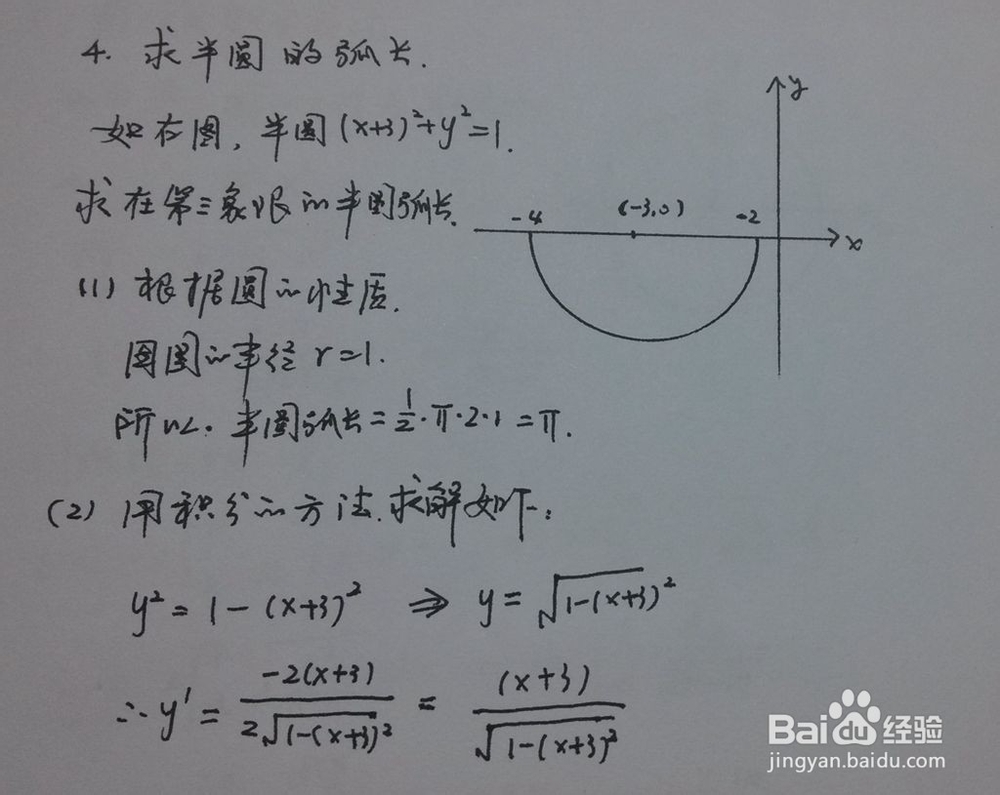 4. 求半圆的弧长.
如右图, 半圆(x+3)²+y²=1.
求在第三象限的半圆弧长.
y
-4 (-3,0) -2
x
(1) 根据圆的性质.
圆的半径 r=1.
所以. 半圆弧长=1/2·π·2·1=π.
(2) 用积分的方法.求解如下:
y²=1-(x+3)² ⇒ y=√1-(x+3)²
∴y'=-2(x+3)/2√1-(x+3)² = (x+3)/√1-(x+3)²
Baidu经验
jingyan.baidu.com